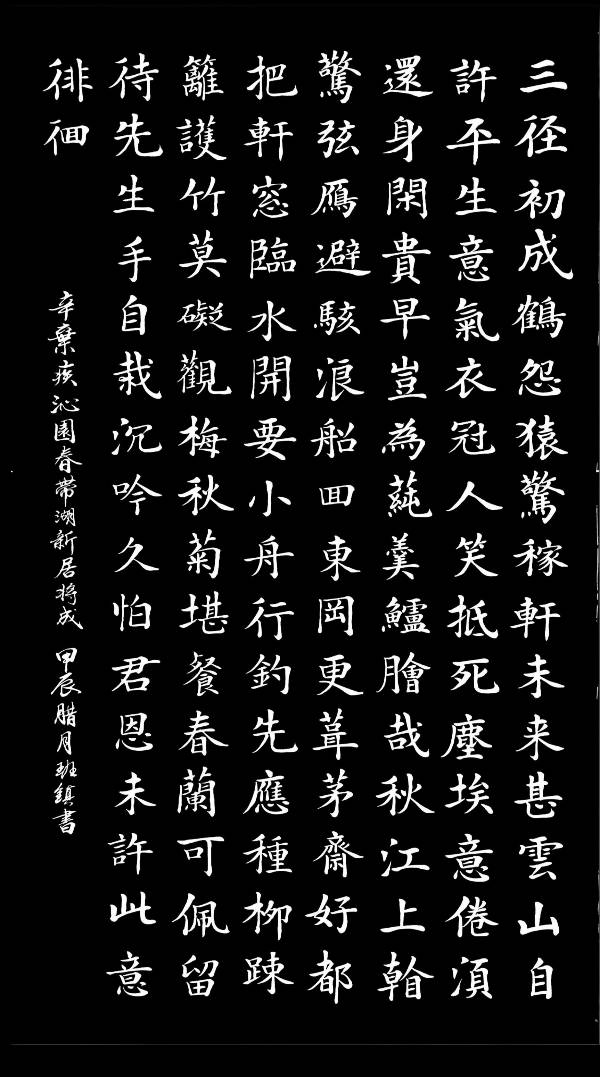 三径初成鶴怨猿驚稼軒未来甚雲山自
許平生意氣衣冠人笑抵死塵埃意倦須
還身閑貴早豈為蒓羹鱸膾哉秋江上看
驚弦鴈避駭浪船囬東岡更葺茅齋好都
把軒窓臨水開要小舟行釣先應種柳踈
籬護竹莫礙觀梅秋菊堪餐春蘭可佩留
待先生手自栽沉吟久怕君恩未許此意
徘徊
辛棄疾沁園春带湖新居将成 甲辰腊月班鎮書